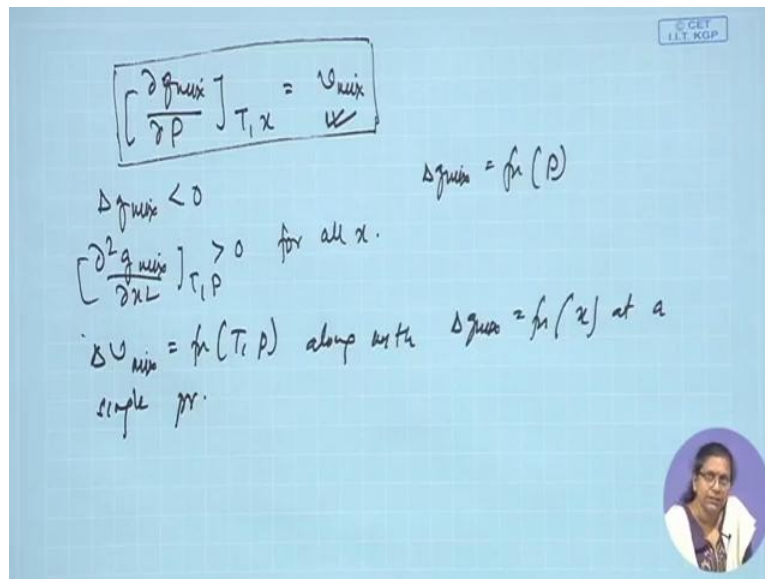 © CET
I.I.T. KGP
[∂g_mix/∂P]_T,x = v_mix
Δg_mix < 0
Δg_mix = fn (P)
[∂²g_mix/∂x²]_T,P > 0 for all x.
Δv_mix = fn (T, P) along with Δg_mix = fn (x) at a
single pr.